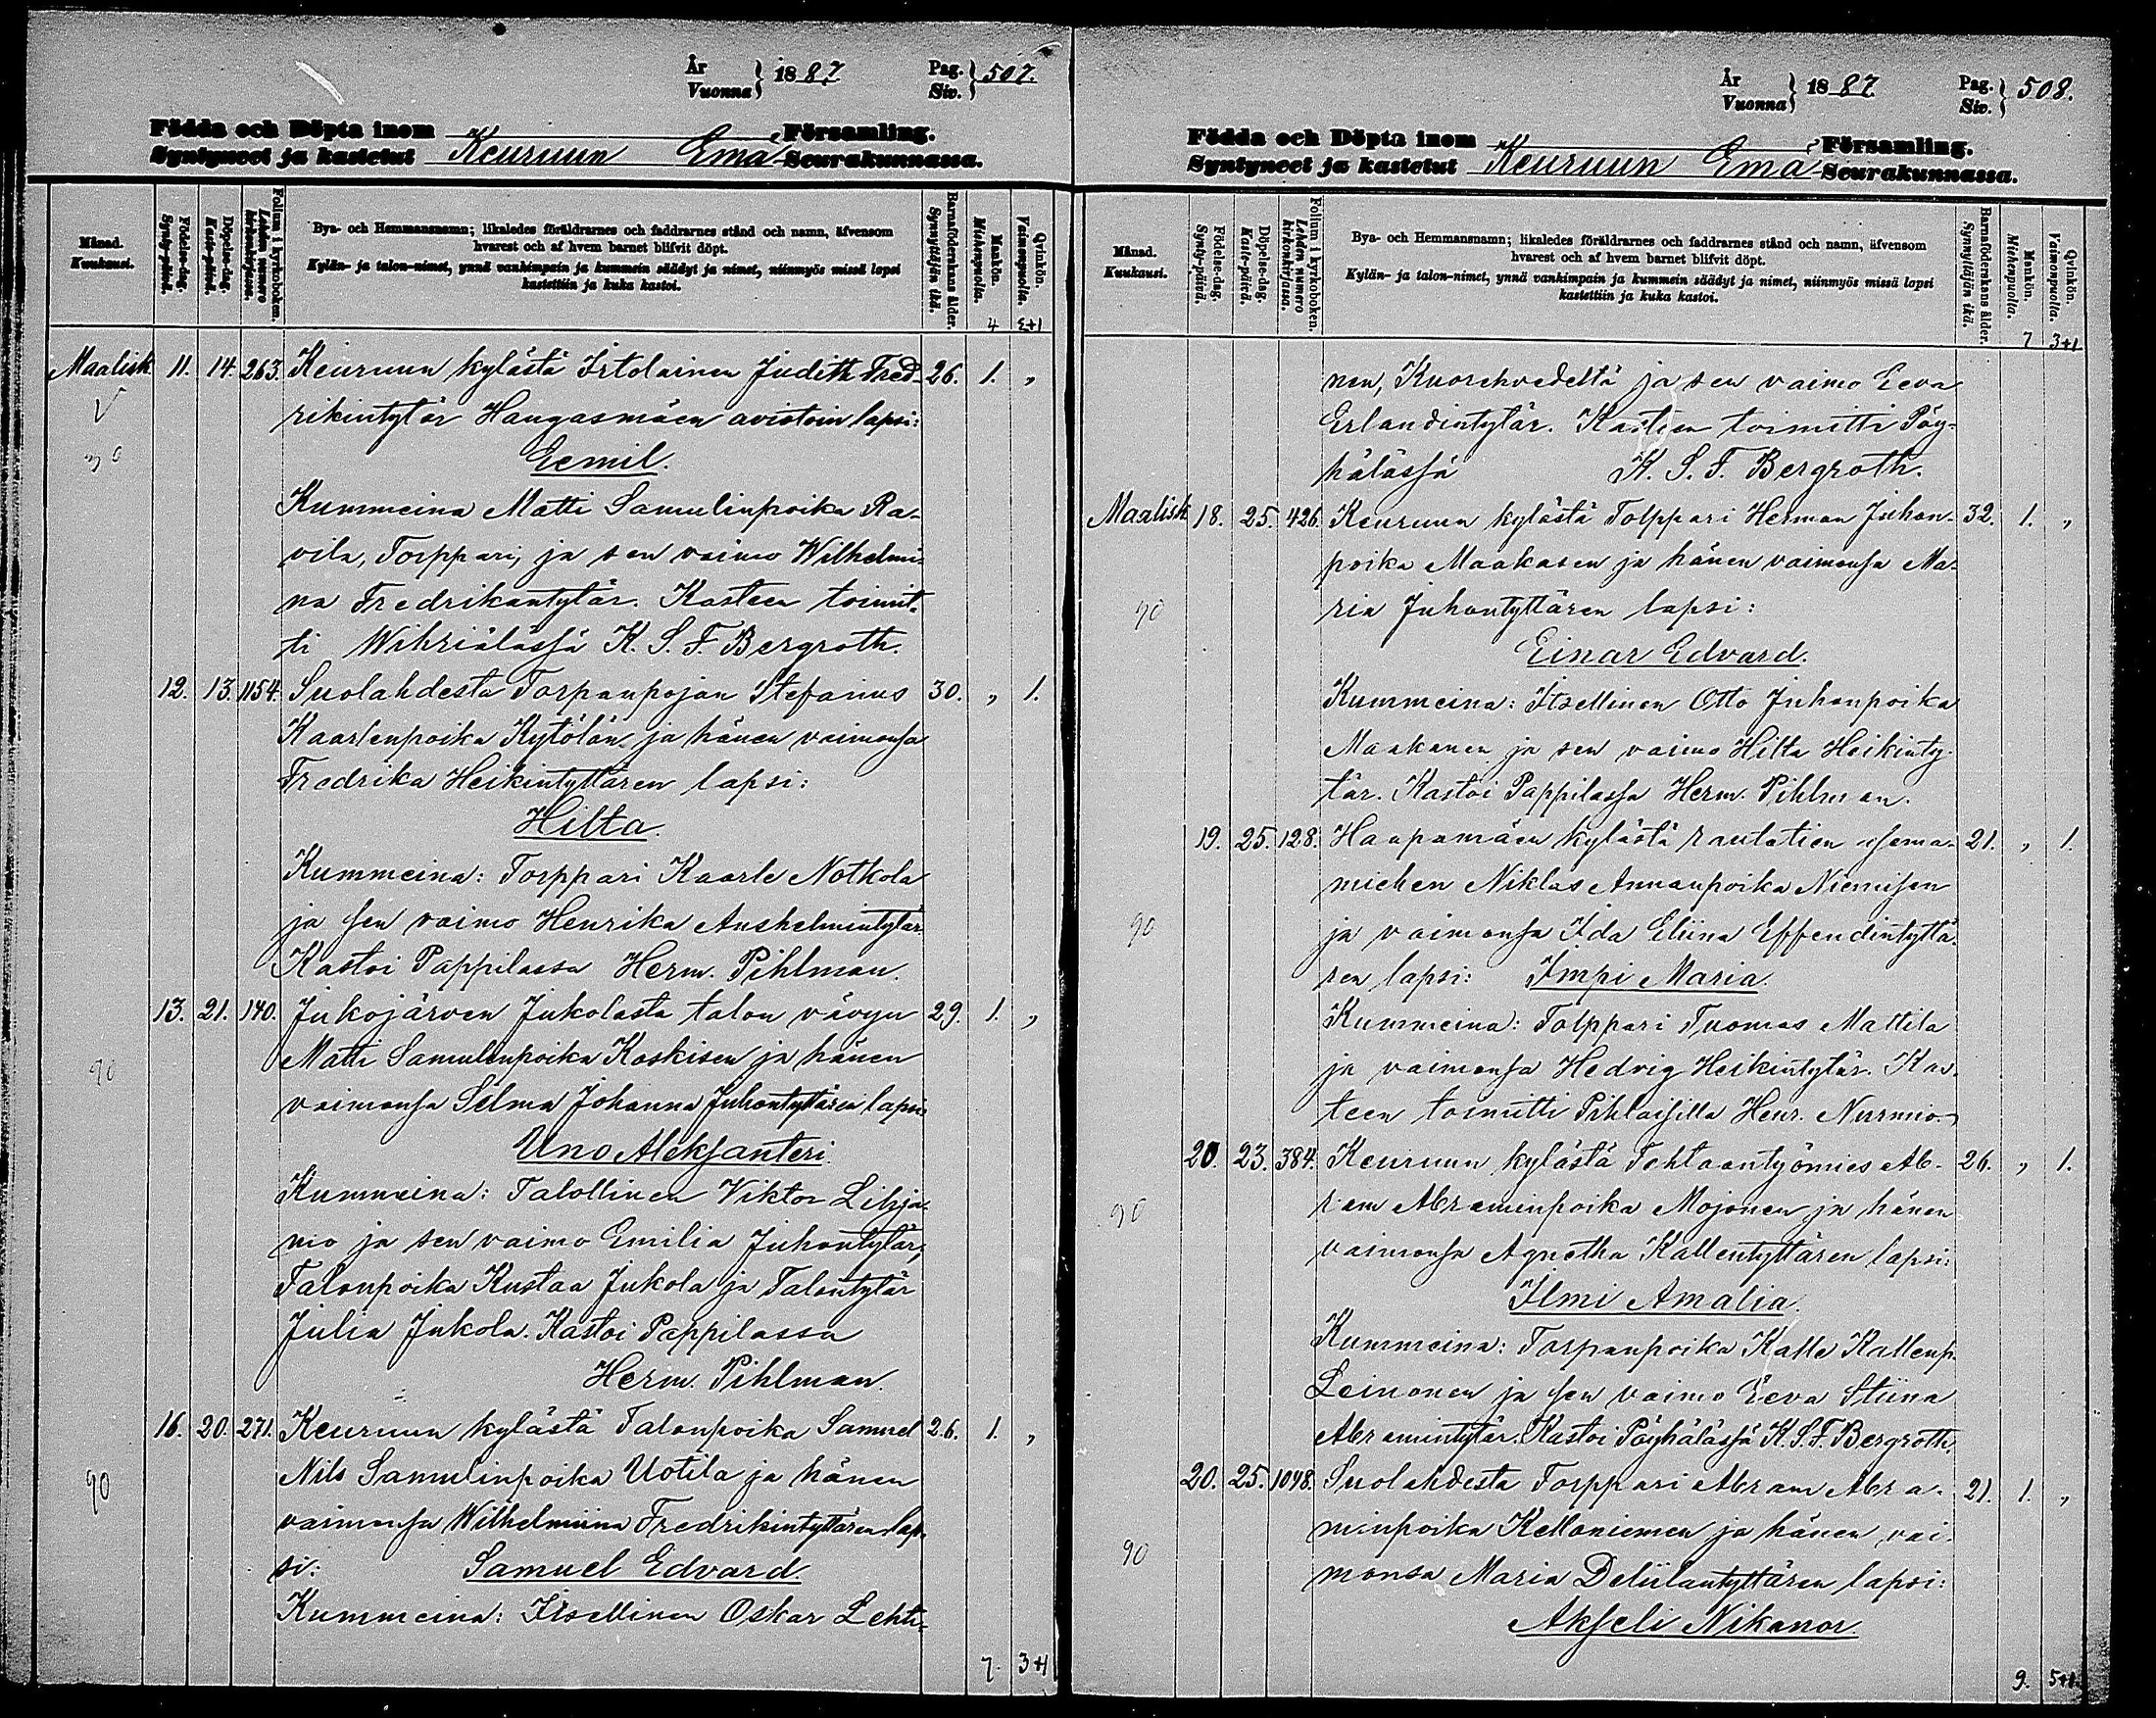 År
Vuonna } 1887. Pag.
Siv. } 507.
Födda och Döpta inom Församling.
Syntyneet ja kastetut Keuruun Emä Seurakunnassa.
Månad.
Kuukausi.
Födelse-dag.
Synty-päivä.
Döpelse-dag.
Kaste-päivä.
Folium i kyrkoboken.
Lehden numero
kirkonkirjassa.
Bya- och Hemmansnamn; likaledes föräldrarnes och faddrarnes stånd och namn, äfvensom
hvarest och af hvem barnet blifvit döpt.
Kylän- ja talon-nimet, ynnä vanhimpain ja kummein säädyt ja nimet, niinmyös missä lapsi
kastettiin ja kuka kastoi.
Barnaföderskans ålder.
Synnyttäjän ikä.
Mankön.
Miehenpuolia.
Qvinkön.
Vaimonpuolia.
4 3+1
Maalisk. 11. 14. 263. Keuruun kylästä Irtolainen Judith Fred- 26. 1. "
rikintytär Haugasmäen aviotoin lapsi:
Eemil.
Kummeina Matti Samulinpoika Ra-
vila, Torppari, ja sen vaimo Wilhelmi-
na Fredrikantytär. Kasteen toimit-
ti Wihriälässä K. S. F. Bergroth.
12. 13. 1154. Suolahdesta Torpanpojan Stefanus 30. " 1.
Kaarlenpoika Kytölän ja hänen vaimonsa
Fredrika Heikintyttären lapsi:
Hilta.
Kummeina: Torppari Kaarle Notkola
ja sen vaimo Henrika Anshelmintytär.
Kastoi Pappilassa Herm. Pihlman.
13. 21. 140. Jukojärven Jukolasta talon vävyn 29. 1. "
90 Matti Samulinpoika Koskisen ja hänen
vaimonsa Selma Johanna Juhontyttären lapsi
Uno Aleksanteri.
Kummeina: Talollinen Viktor Lihja-
mo ja sen vaimo Emilia Juhontytär,
Talonpoika Kustaa Jukola ja Talontytär
Julia Jukola. Kastoi Pappilassa
Herm. Pihlman.
16. 20. 271. Keuruun kylästä Talonpoika Samuel 26. 1. "
90 Nils Samulinpoika Uotila ja hänen
vaimonsa Wilhelmiina Fredrikintyttären lap-
si: Samuel Edvard
Kummeina: Itsellinen Oskar Lehti-
7. 3+1
År
Vuonna } 1887. Pag.
Siv. } 508.
Födda och Döpta inom Församling.
Syntyneet ja kastetut Keuruun Emä Seurakunnassa.
Månad.
Kuukausi.
Födelse-dag.
Synty-päivä.
Döpelse-dag.
Kaste-päivä.
Folium i kyrkoboken.
Lehden numero
kirkonkirjassa.
Bya- och Hemmansnamn; likaledes föräldrarnes och faddrarnes stånd och namn, äfvensom
hvarest och af hvem barnet blifvit döpt.
Kylän- ja talon-nimet, ynnä vanhimpain ja kummein säädyt ja nimet, niinmyös missä lapsi
kastettiin ja kuka kastoi.
Barnaföderskans ålder.
Synnyttäjän ikä.
Mankön.
Miehenpuolia.
Qvinkön.
Vaimonpuolia.
7 3+1
nen, Kuorehvedeltä ja sen vaimo Eeva
Erlandintytär. Kasteen toimitti Pöy-
hälässä K. S. F. Bergroth.
Maalisk. 18. 25. 426. Keuruun kylästä Tolppari Herman Juhon- 32. 1. "
poika Maakasen ja hänen vaimonsa Ma-
90 ria Juhontyttären lapsi:
Einar Edvard.
Kummeina: Itsellinen Otto Juhonpoika
Maakanen ja sen vaimo Hilta Heikinty-
tär. Kastoi Pappilassa Herm. Pihlman.
19. 25. 128. Haapamäen kylästä rautatien asema- 21. " 1.
miehen Niklas Annanpoika Niemisen
90 ja vaimonsa Ida Eliina Effendintyttä-
ren lapsi: Impi Maria.
Kummeina: Tolppari Tuomas Mattila
ja vaimonsa Hedvig Heikintytär. Kas-
teen toimitti Pihlaisilla Henr. Nurmio.
20. 23. 384. Keuruun kylästä Tehtaantyömies Ab- 26. " 1.
90 ram Abraminpoika Mojonen ja hänen
vaimonsa Agnetha Kallentyttären lapsi:
Ilmi Amalia.
Kummeina: Torpanpoika Kalle Kallenp.
Leinonen ja sen vaimo Eeva Stiina
Abramintytär. Kastoi Pöyhälässä K. S. F. Bergroth
20. 25. 1048. Suolahdesta Torppari Abram Abra- 21. 1. "
minpoika Kelloniemen ja hänen vai-
90 monsa Maria Deliilantyttären lapsi:
Akseli Nikanor.
9. 5+1.